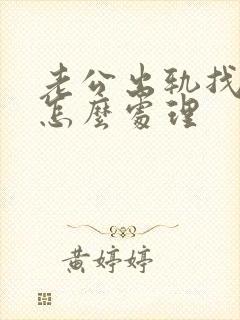 老公出轨找
怎麼處理
黄婷婷